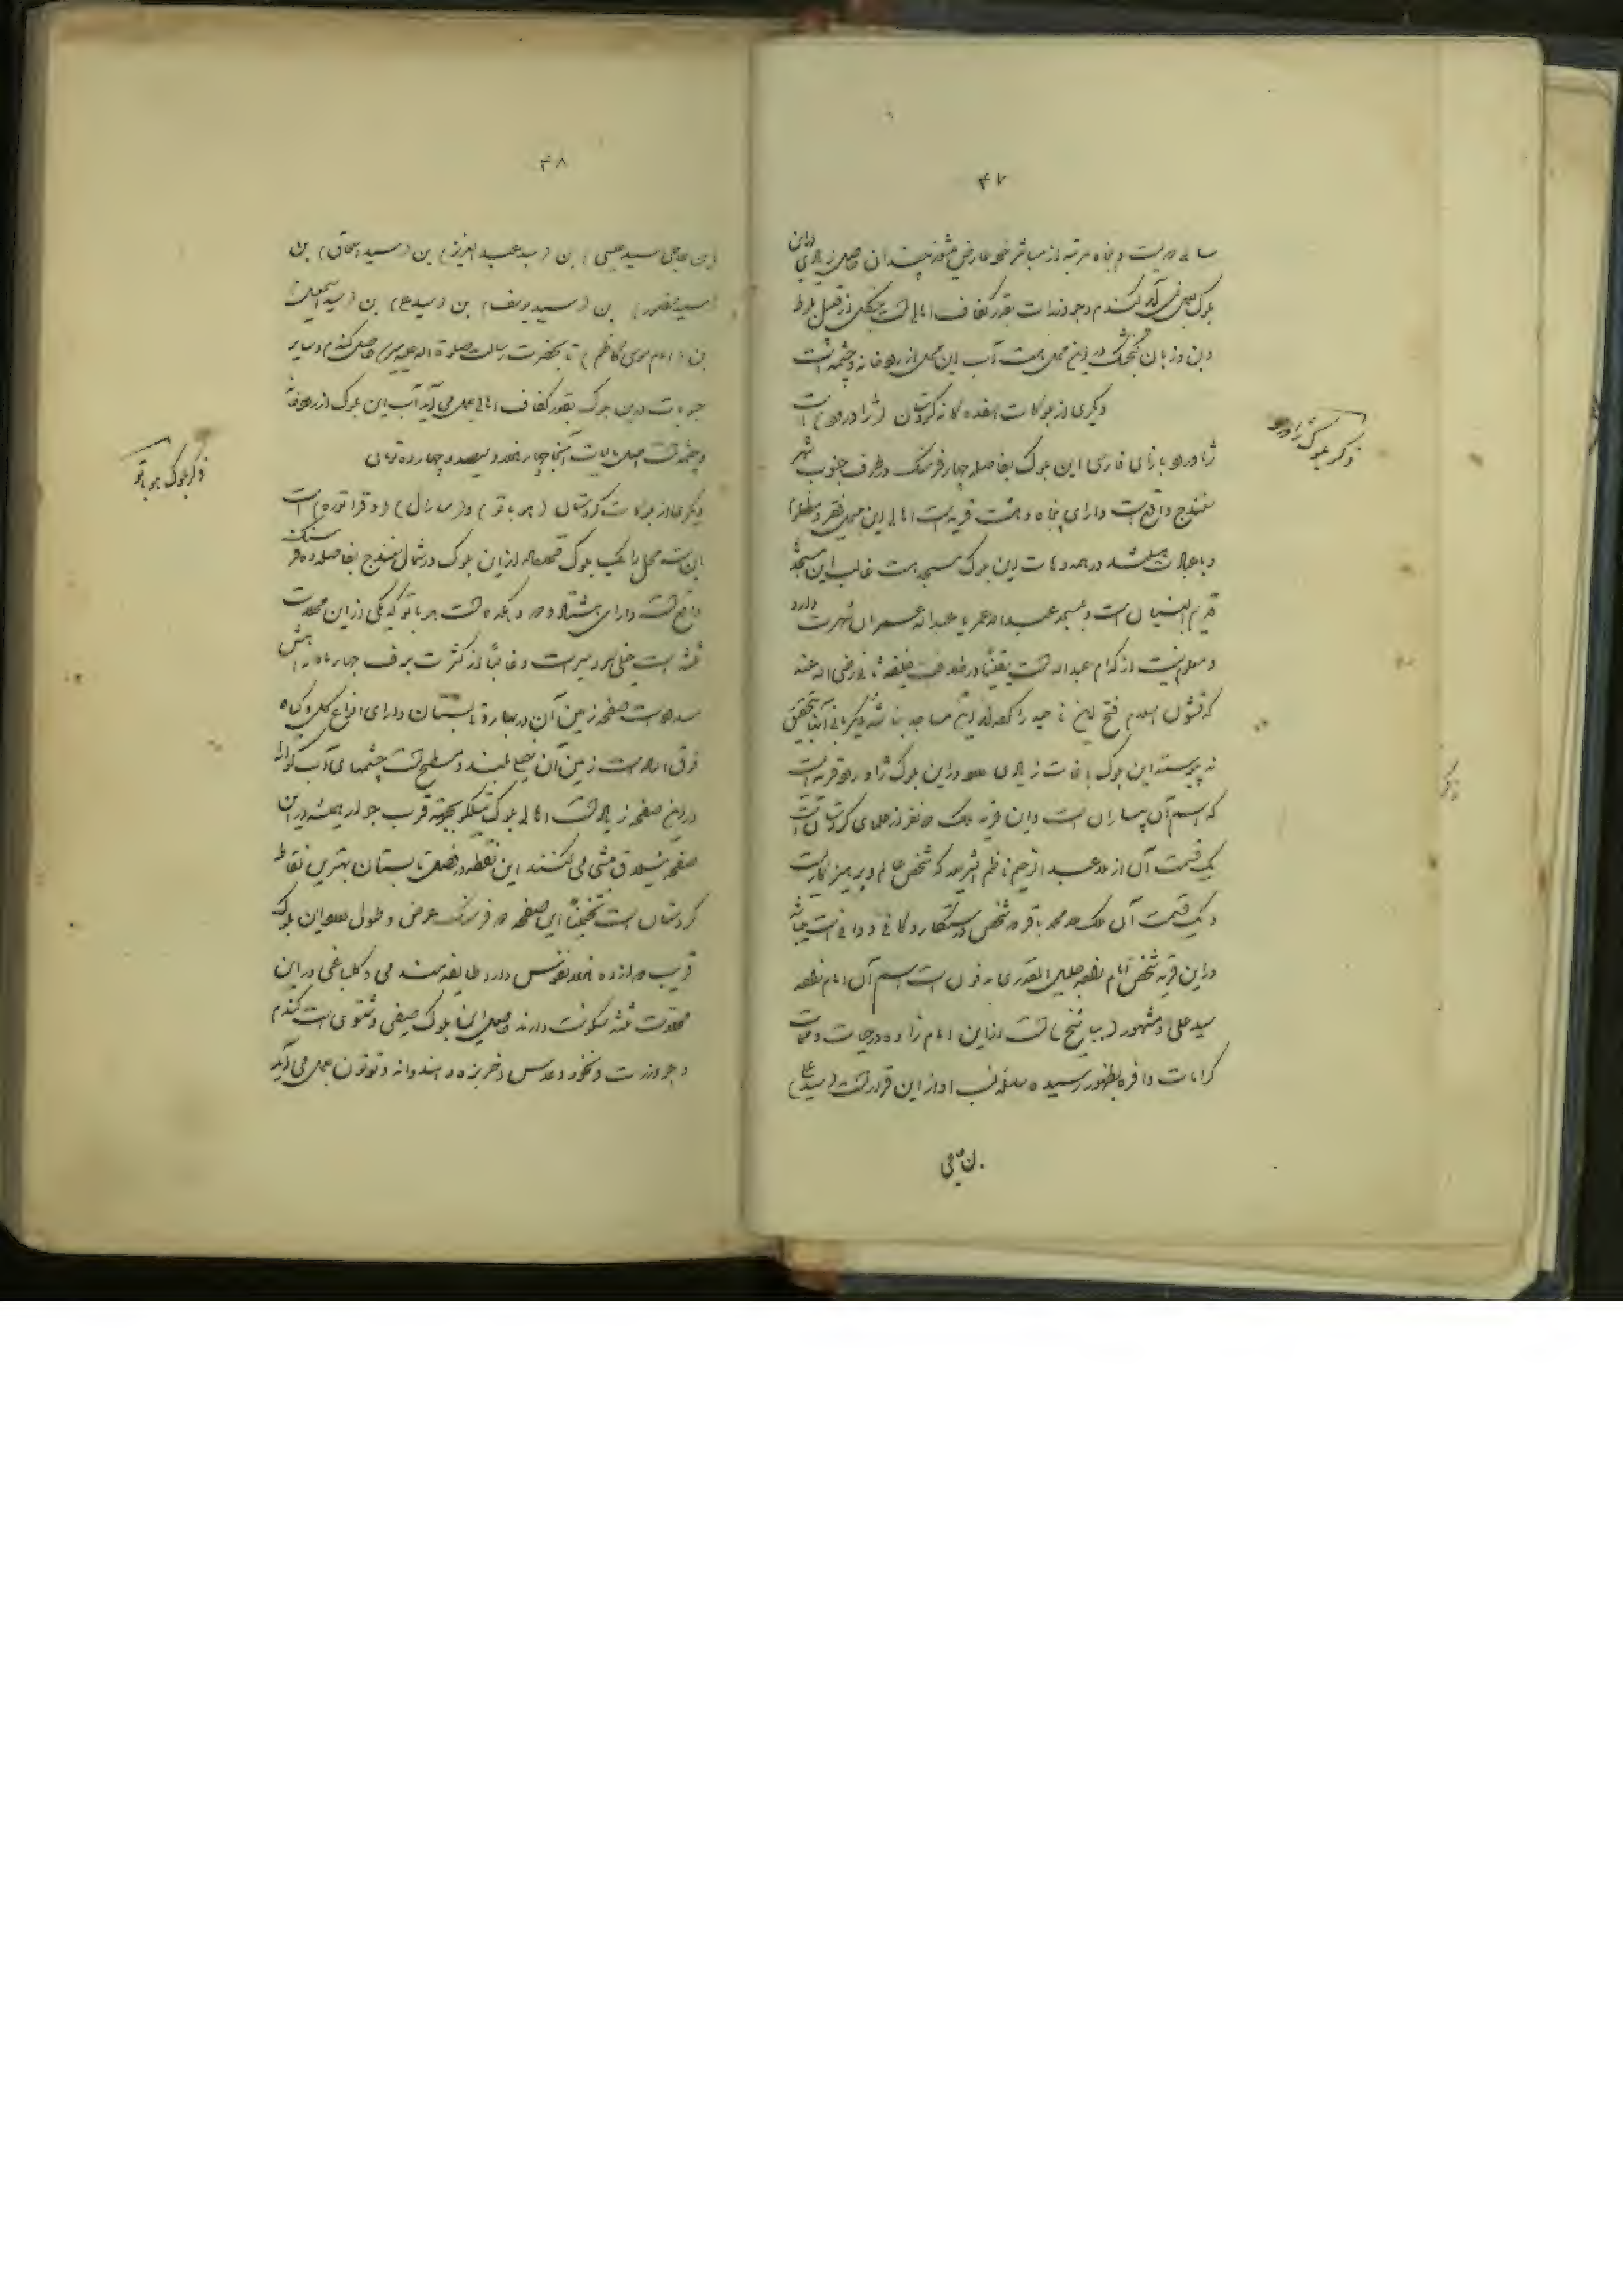 ۴۷
سالی دویست و پنجاه مرتبه از مباشر خود عارض میشوند چندان حاصل زیادی دراین
بلوک بعمل نمی آید گندم و جو و ذرات بقدر کفاف اهالی است جنگلی از قبیل بلوط
و بن و زبان گنجشک در این محل هست آب این محل از رودخانه و چشمه است
دیگری از بلوکات هفده گانه کردستان (ژاورود) است
ذکر بلوک ژاورود
ژاورود با زای فارسی این بلوک بفاصله چهار فرسنگ در طرف جنوب شهر
سنندج واقع است دارای پنجاه و هشت قریه است اهالی این محل فقیر و مظلوم
و باعبادت میباشند در همه دهات این بلوک مسجد هست غالب این مسجدها
قدیم البنیان است و بمسجد عبدالله عمر یا عبدالله عمران شهرت دارد
و معلوم نیست از کدام عبدالله است یقیناً در خلافت خلیفه ثانی رضی الله عنه
که قشون اسلام فتح این ناحیه را کرده اند این مساجد بنا شده دیگر بانی آنها بتحقیق
نه پیوسته این بلوک باغات زیادی دارد در این بلوک ژاورود قریه است
که اسم آن پیساران است و این قریه ملک دو نفر از علمای کردستان است
یک قسمت آن از ملا عبدالرحیم ناظم الشریعه که شخص عالم و پرهیزکاریست
و یک قسمت آن ملک ملا محمد باقر که شخص درستکار و کافی و دانی است میباشد
در این قریه شخص امام زاده جلیل القدری مدفون است اسم آن امام زاده
سید علی و مشهور (بپا شیخ) است از این امام زاده در حیات و ممات
کرامات وافره بظهور رسیده سلسله نسب او از این قرار است (سید علی)
۴۸
(بن حاجی سید عیسی) بن (سید عبدالعزیز) بن (سید اسحاق) بن
(سید منصور) بن (سید یوسف) بن (سید) بن (سید اسمعیل)
بن (امام موسی کاظم) تا بحضرت رسالت صلوة الله علیه میرسد حاصل گندم و سایر
حبوبات در این بلوک بقدر کفاف اهالی بعمل می آید آب این بلوک از رودخانه
و چشمه است اصل مالیات آنجا چهار هزار و سیصد و چهارده تومان
ذکر بلوک هوباتو
دیگری از بلوکات کردستان (هوباتو) و (سارال) (و قراتوره) است
این سه محل را یک بلوک قرار داده اند این بلوک در شمال سنندج بفاصله ده فرسنگ
واقع است دارای هشتاد و دو دهکده است هوباتو که یکی از این محلات
ثلثه است خیلی سردسیر است و غالباً از کثرت برف چهار ماه راهش
مسدود است صفحه زمین آن در بهار و تابستان دارای انواع گل و گیاه
فوق العاده است زمین آن خیلی بلند و مسطح است چشمهای آب گوارا
در این صفحه زیاد است اهالی بلوک بجهة قرب جوار همیشه در این
صفحه ییلاق مشی می کنند این نقطه در فصل تابستان بهترین نقاط
کردستان است تخمیناً این صفحه ده فرسنگ عرض و طول دارد این بلوک
قریب دوازده هزار نفوس دارد طایفه مندمی و گلباغی در این
محلات ثلثه سکونت دارند حاصل این بلوک صیفی و شتوی است گندم
و جو و ذرت و نخود و عدس و خربزه و هندوانه و توتون بعمل می آید